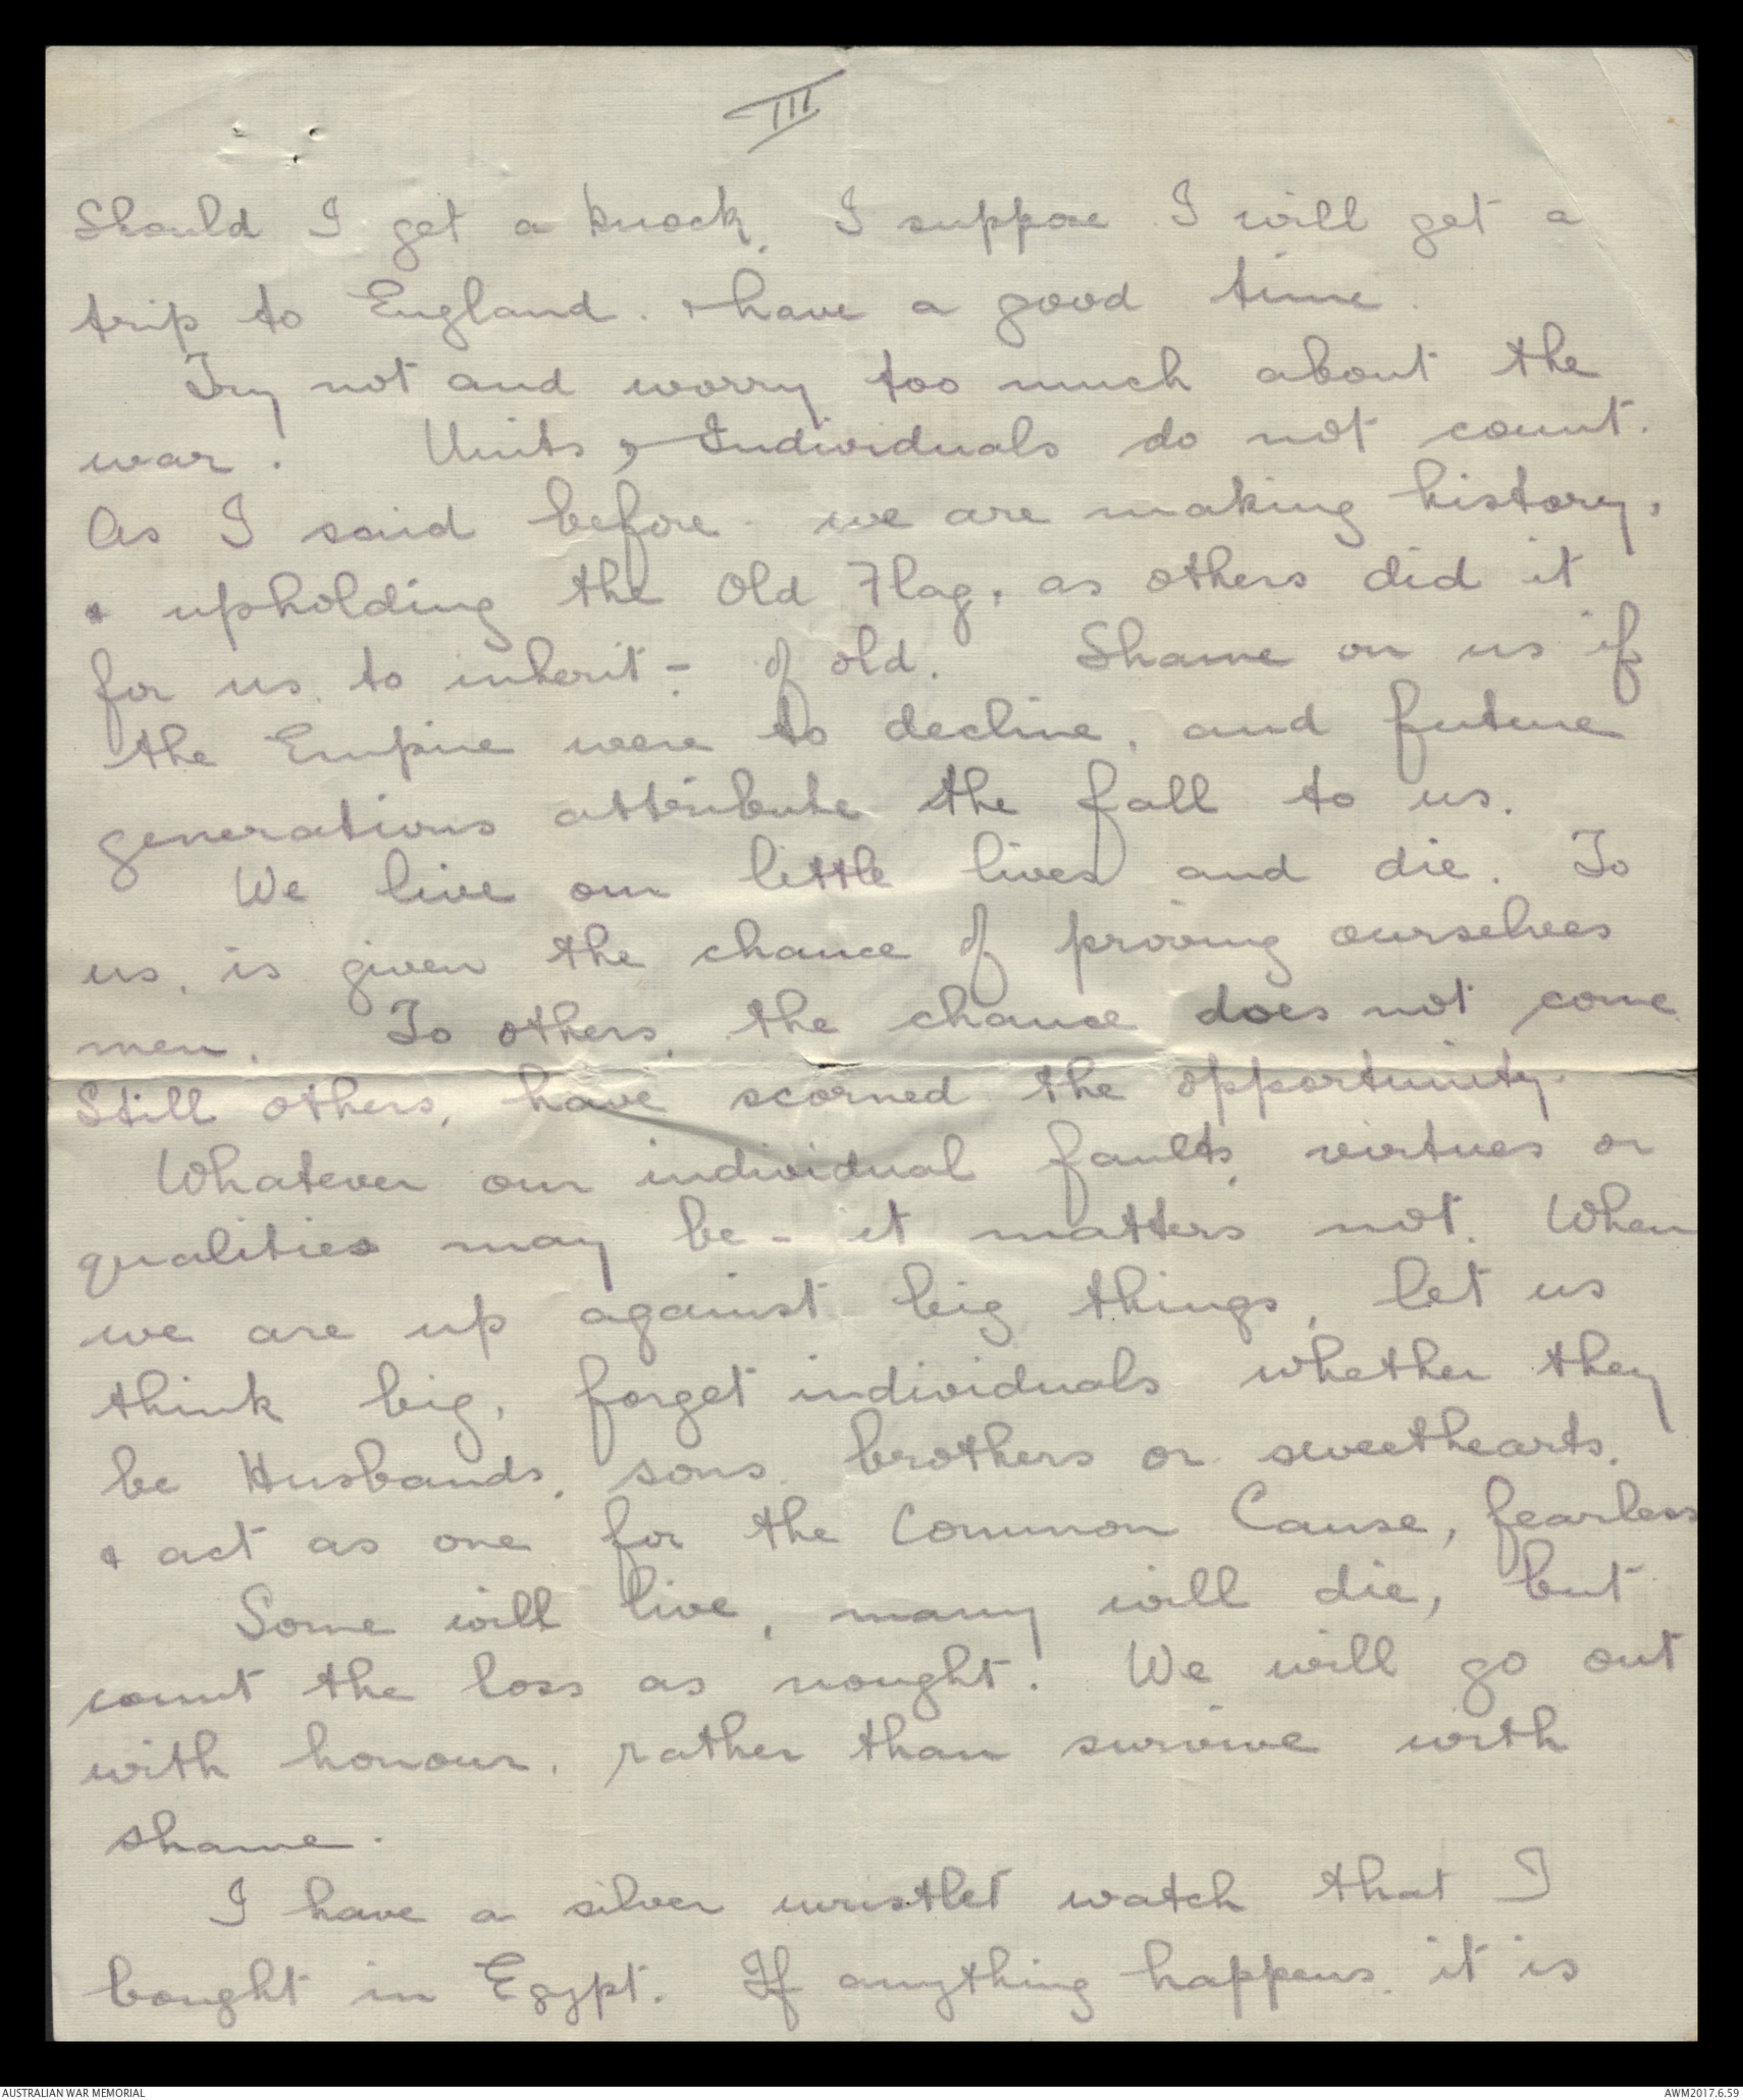 III
Should I get a knock, I suppose I will get a
trip to England. & have a good time.
Try not and worry too much about the
war. Units, & Individuals do not count.
As I said before - we are making history,
& upholding the Old Flag, as others did it
for us, to inherit - of old. Shame on us if
the Empire were to decline, and future
generations attribute the fall to us.
We live our little lives and die. To
us, is given the chance of proving ourselves
men. To others, the chance does not come.
Still others, have scorned the opportunity.
Whatever our individual faults, virtues or
qualities may be - it matters not. When
we are up against big things, let us
think big, forget individuals whether they
be Husbands, sons, brothers or sweethearts,
& act as one for the Common Cause, fearless
Some will live, many will die, but
count the loss as nought. We will go out
with honour, rather than survive with
shame.
I have a silver wristlet watch that I
bought in Egypt. If anything happens, it is
AUSTRALIAN WAR MEMORIAL
AWM2017.6.59